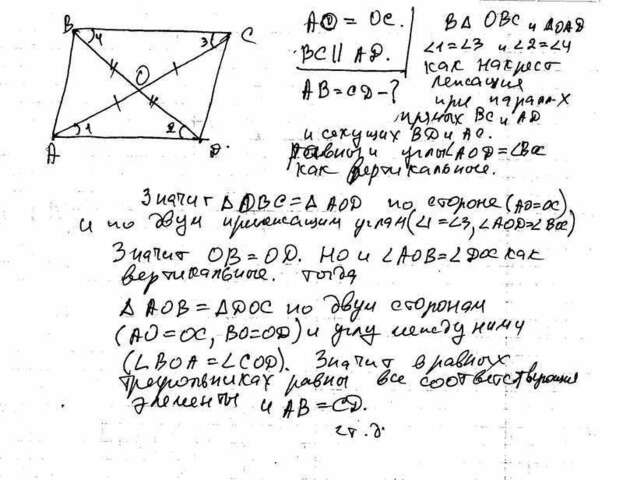 B
C
4
3
O
1
2
A
D
AO = OC.
BC || AD.
AB = CD - ?
В ∆ OBC и ∆OAD
∠1=∠3 и ∠2=∠4
как накрест
лежащие
при паралл-х
прямых BC и AD
и секущих BD и AC.
Равны и углы ∠AOD=∠BOC
как вертикальные.
Значит ∆OBC=∆AOD по стороне (AO=OC)
и по двум прилежащим углам (∠1=∠3, ∠AOD=∠BOC)
Значит OB=OD. Но и ∠AOB=∠DOC как
вертикальные. Тогда
∆ AOB = ∆DOC по двум сторонам
(AO=OC, BO=OD) и углу между ними
(∠BOA = ∠COD). Значит в равных
треугольниках равны все соответствующие
элементы и AB=CD.
чт.д.